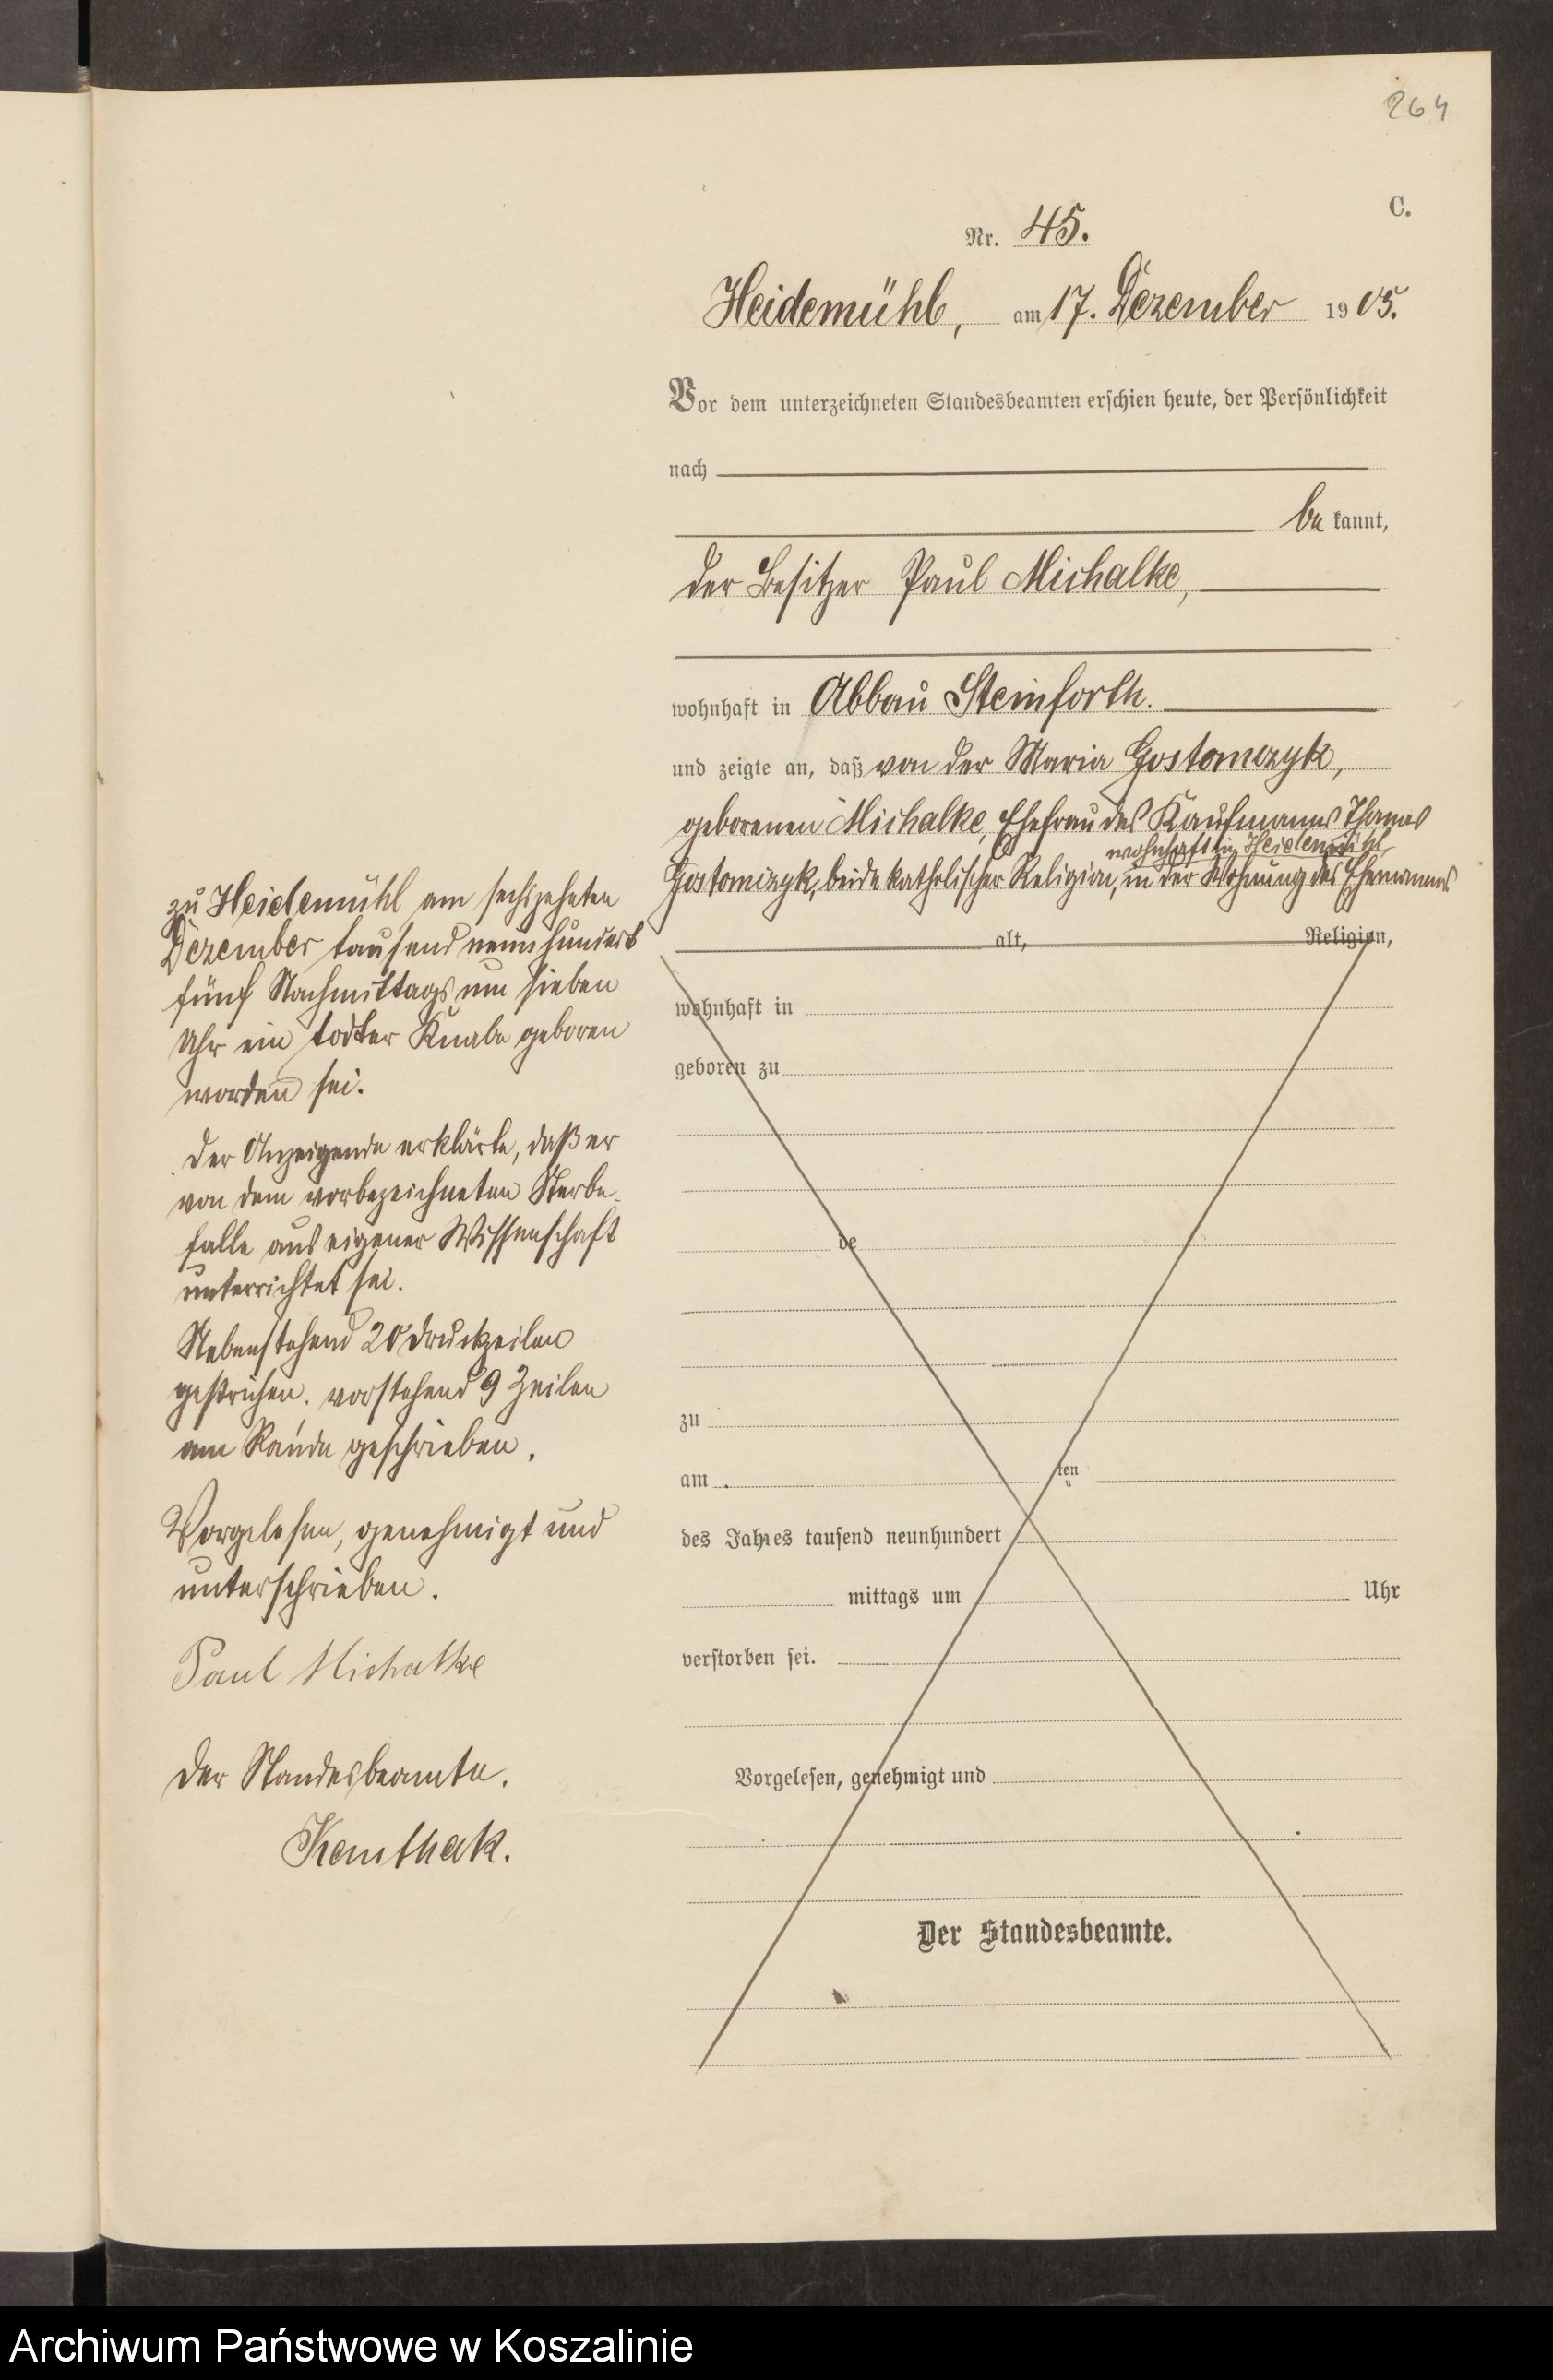 264
C.
Nr. 45.
Heidemühl, am 17. Dezember 1905.
Vor dem unterzeichneten Standesbeamten erschien heute, der Persönlichkeit
nach
be kannt,
der Besitzer Paul Michalke,
wohnhaft in Abbau Steinforth.
und zeigte an, daß von der Maria Gostomczyk,
geborenen Michalke, Ehefrau des Kaufmanns Thomas
wohnhaft in Heidemühl
Gostomczyk, beide katholischer Religion, in der Wohnung des Ehemannes
alt, Religion,
zu Heidemühl am sechszehnten
Dezember tausend neunhundert
fünf Nachmittags um sieben
Uhr ein todter Knabe geboren
worden sei.
Der Anzeigende erklärte, daß er
von dem vorbezeichneten Sterbe-
falle aus eigener Wissenschaft
unterrichtet sei.
Nebenstehend 20 Druckzeilen
gestrichen. vorstehend 9 Zeilen
am Rande geschrieben.
Vorgelesen, genehmigt und
unterschrieben.
Paul Michalke
Der Standesbeamte.
wohnhaft in
geboren zu
de
zu
am ten
des Jahres tausend neunhundert
mittags um Uhr
verstorben sei.
Vorgelesen, genehmigt und
Der Standesbeamte.
Archiwum Państwowe w Koszalinie